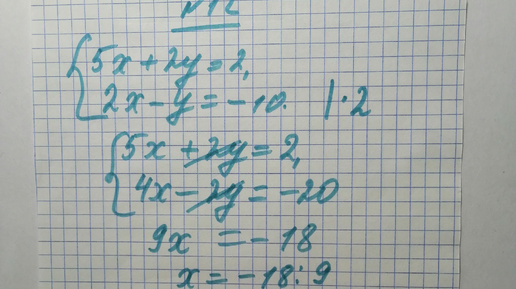 №12
5x+2y=2,
2x-y=-10. |·2
5x+2y=2,
4x-2y=-20
9x=-18
x=-18:9